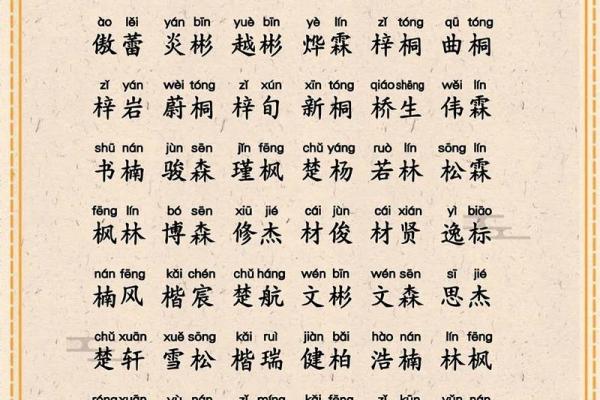 ào lěi yán bīn yuè bīn yè lín zǐ tóng qū tóng
傲蕾 炎彬 越彬 烨霖 梓桐 曲桐
zǐ yán wèi tóng zǐ xún xīn tóng qiáo shēng wěi lín
梓岩 蔚桐 梓旬 新桐 桥生 伟霖
shū nán jùn sēn jǐn fēng chǔ yáng ruò lín sōng lín
书楠 骏森 瑾枫 楚杨 若林 松霖
fēng lín bó sēn xiū jié cái jùn cái xián yì biāo
枫林 博森 修杰 材俊 材贤 逸标
nán fēng kǎi chén chǔ háng wén bīn wén sēn sī jié
楠风 楷宸 楚航 文彬 文森 思杰
chǔ xuān xuě sōng kǎi ruì jiàn bǎi hào nán lín fēng
楚轩 雪松 楷瑞 健柏 浩楠 林枫